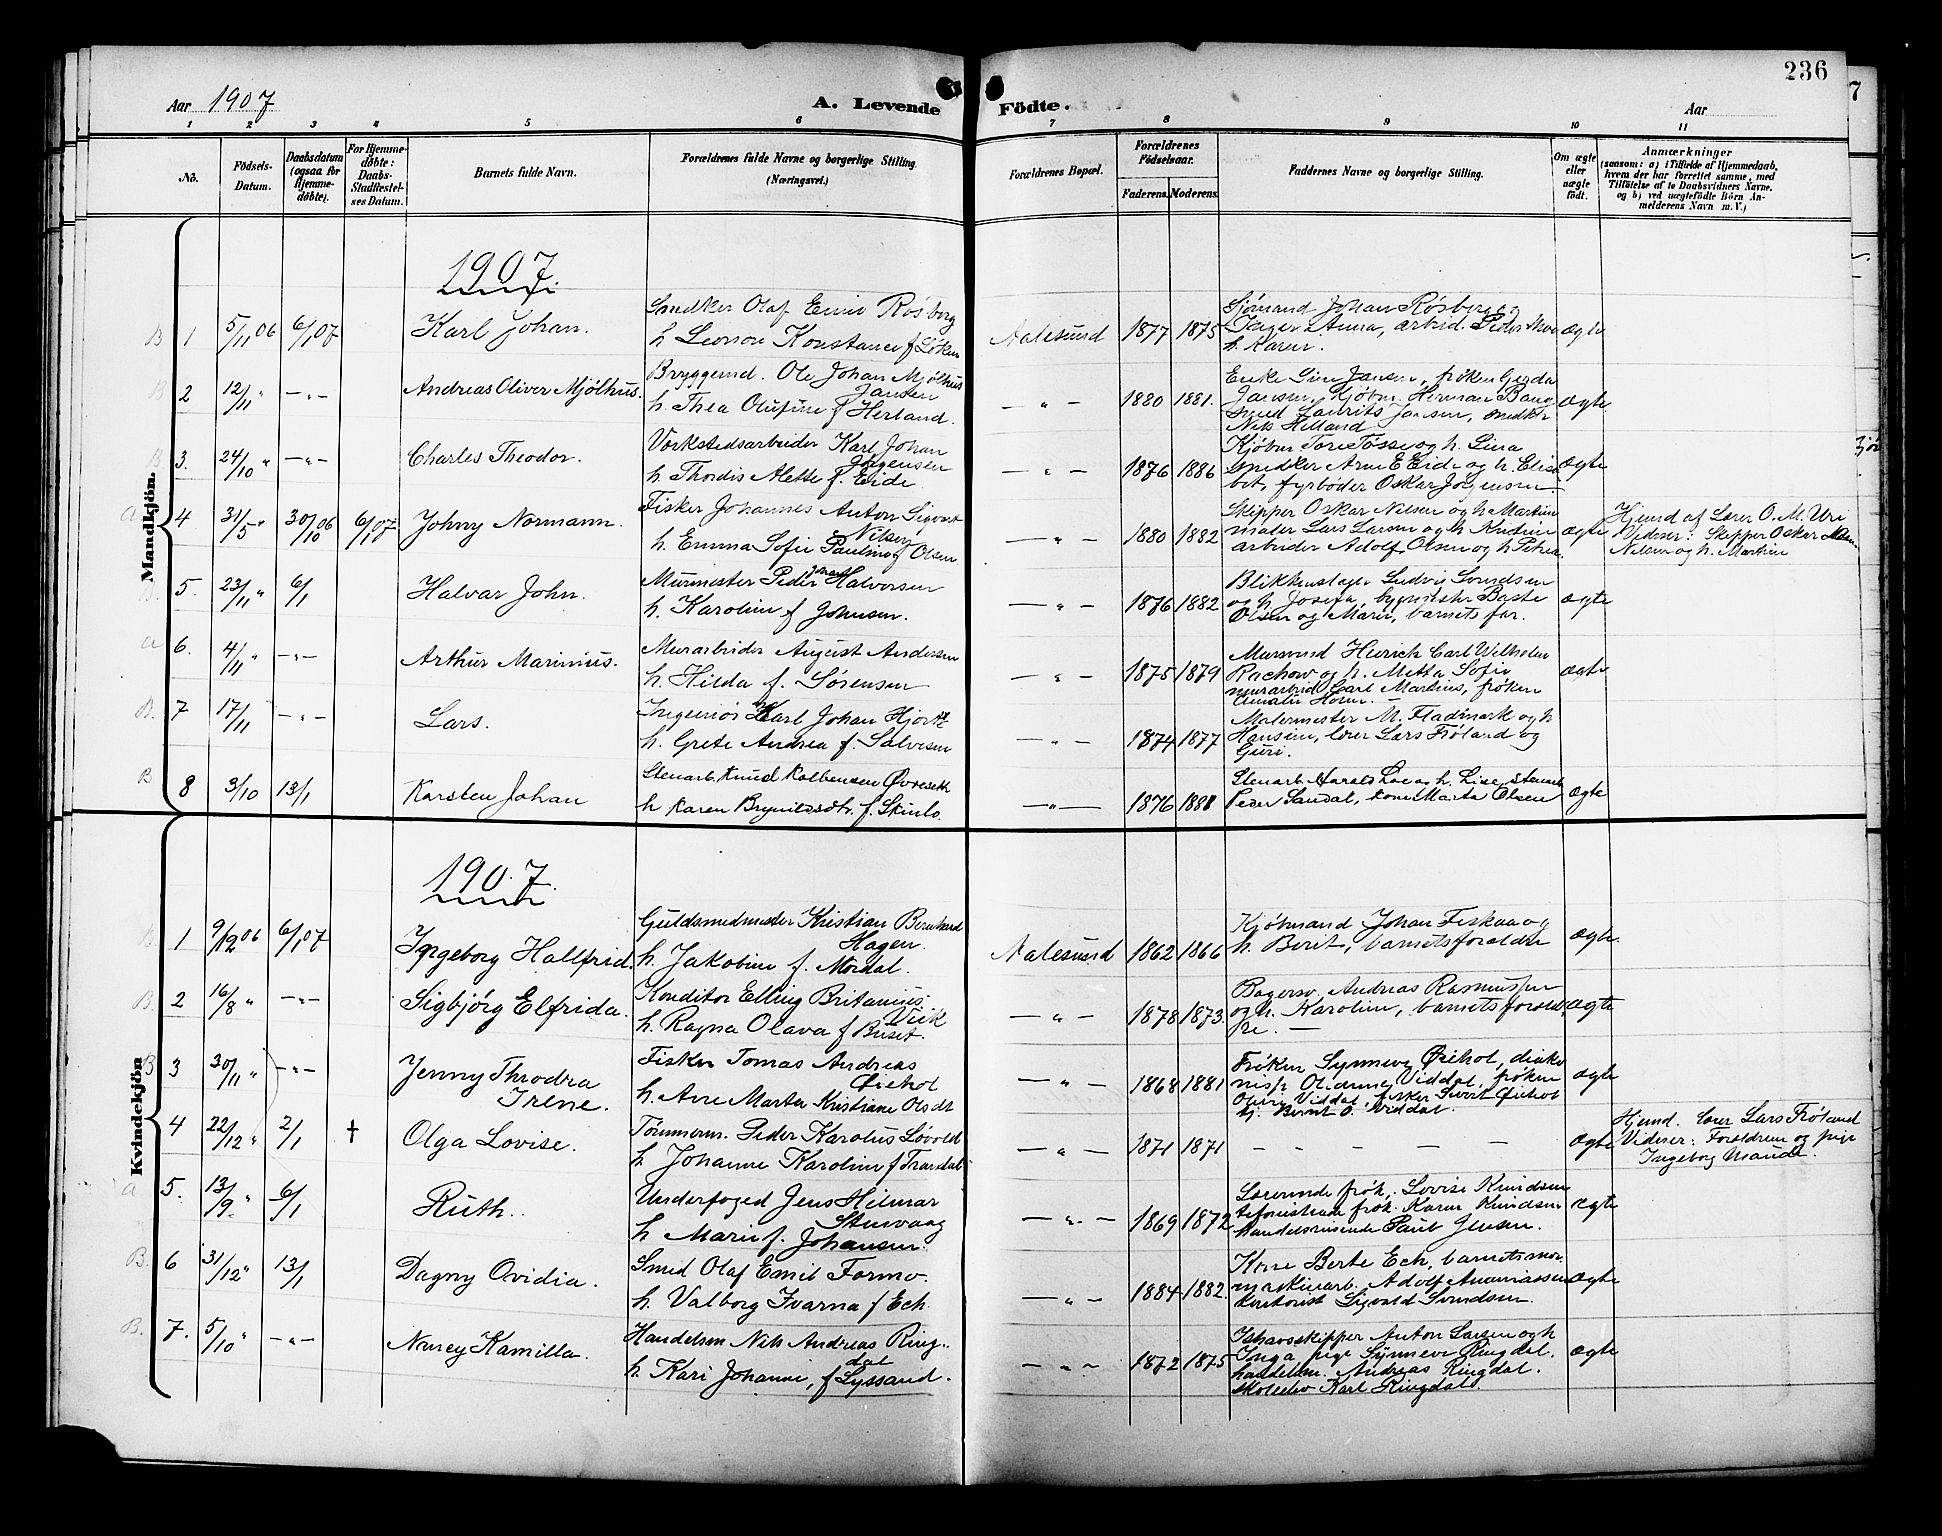 236
Aar 1907
A. Levende Födte.
Aar
1 2 3 4 5 6 7 8 9 10 11
No.
Födsels-Datum.
Daabsdatum (ogsaa for Hjemme-døbte).
For Hjemme-døbte: Daabs-Stadfæstel-ses Datum.
Barnets fulde Navn.
Forældrenes fulde Navne og borgerlige Stilling. (Næringsvei.)
Forældrenes Bopæl.
Forældrenes Fødselsaar.
Faderens. Moderens.
Faddernes Navne og borgerlige Stilling.
Om ægte eller uægte født.
Anmærkninger
(saasom: a) i Tilfælde af Hjemmedaab, hvem der har forrettet samme, med Tilføielse af to Daabsvidners Navne, og b) ved uægtefödte Börn An-melderens Navn m. V.)
Mandkjön.
1907.
B 1 5/11 06 6/1 07 Karl Johan.
Snedker Olaf Emil Rösberg
h. Leonore Konstance f. Löken
Aalesund 1877 1875
Sjömand Johan Rösberg og
Inger Anna, arbeid. Peder
h. Karen.
ægte
B 2 12/11 " — " — Andreas Oliver Mjölhus.
Bryggemd. Ole Johan Mjölhus
Jansen
h. Thea Olufine f. Herland.
— " — 1880 1881.
Enke Sine Jansen, fröken Gyda
Jansen, Kjöbm. Herman Bang
smed Laurits Jansen, snedker
Nils Helland
ægte
B 3. 24/10 " — " — Charles Theodor.
Værkstedsarbeider Karl Johan
Jörgensen
h. Thordis Alette f. Eide
— " — 1876 1886
Kjöbm Tore Tösse og h. Lina
snedker Arne E Eide og h. Elisa
bet, fyrböder Oskar Jörgensen.
ægte
a 4 31/5 " 30/10 06 6/1 07 Johny Normann.
Fisker Johannes Anton Sigvart
Nilsen
h. Emma Sofie Pauline f. Olsen
— " — 1880 1882
Skipper Oskar Nilsen og h Martine
maler Lars Larsen og h. Kndine
arbeider Adolf Olsen og h. Petrea
ægte
Hjemd af Lærer O. M. Uri
Vidner: Skipper Oskar
Nilsen og h. Martine
B. 5. 23/11 " 6/1 Halvar John.
Murmester Peder Halvorsen
h. Karoline f. Johnsen.
— " — 1876 1882
Blikkenslager Ludvig Svendsen
og h. Josefa, bygmester Baste
Olsen og Marie, barnets far.
ægte
a 6. 4/11 " — " — Arthur Marinius.
Murarbeider August Andersen
h. Hilda f. Sörensen
— " — 1875 1879
Murmd Hinrich Carl Wilhelm
Rachow og h. Metta Sofie
murarbeid Carl Martins, fröken
Amalie Holm.
ægte
B. 7 17/11 — " — Lars.
Ingeniör Karl Johan Hjorth
h. Grete Andrea f. Salvesen
— " — 1874 1877
Malermester M. Fladmark og h
Hansine, lærer Lars Fröland og
Guri.
B 8 3/10 13/1 Karsten Johan
Stenarb. Knud Kolbensen Övresæth
h Karen Brynildsdtr. f. Skinlo.
— " — 1876 1881
Stenarb. Harald Loe og h. Lise, stenarb
Peder Sandal, kone Marta Olsen
ægte
Kvindekjön
1907.
B 1 9/12 06 6/1 07 Ingeborg Hallfrid.
Guldsmedmester Kristian Bernhard
Hagen.
h. Jakobine f. Mordal.
Aalesund 1862 1866
Kjöbmand Johan Fiskaa og
h. Berit, barnets foreldre
ægte.
B. 2 16/8 " — " — Sigbjörg Elfrida.
Konditor Elling Britanius
Viik
h. Ragna Olava f. Buset.
— " — 1878 1873.
Bagersv. Andreas Rasmussen
og h. Karoline, barnets foreld
re. —
ægte
B 3 30/11 " — " — Jenny Throdra
Irene.
Fisker Tomas Andreas
Öiehol
h. Ane Marta Kristiane Olsdt
— " — 1868 1881
Fröken Synneve Öiehol, diako
nisse Oldernes Viddal, fröken
Oline Viddal, fisker Sivert Öiehol
Bernt O. Viddal.
ægte
4 22/12 " 2/1 † Olga Lovise.
Tömmerm. Peder Karolus Lövold
h. Johanne Karoline f. Trandal
— " — 1871 1871
— — — — —
ægte
Hjemd. lærer Lars Fröland
Vidner: Foreldrene og pige
Ingeborg Mande.
a 5. 13/9 " 6/1 Ruth.
Underfoged Jens Hilmar
Stenvaag
h. Marie f. Johansen.
— " — 1869 1872
Lærerinde frök. Lovise Knudsen
telefonistinde frök. Karen Knudsen
handelsreisende Paul Jensen.
ægte
B. 6 31/12 " 13/1 Dagny Ovidia.
Smed Olaf Emil Formo.
h. Valborg Ivarna f. Eck.
— " — 1884 1882.
Kone Berte Eck, barnets mor
maskinarb. Adolf Ananiassen
kontorist Sigvald Svendsen.
ægte
B. 7. 5/10 " — " — Nancy Kamilla.
Handelsm Nils Andreas Ring-
dal
h. Kari Johanne, f. Lyssand.
— " — 1872 1875
Ishavsskipper Anton Larsen og h
Inga pige Synneve Ringdal.
handelsm. Andreas Ringdal.
skoleelev Karl Ringdal.
ægte